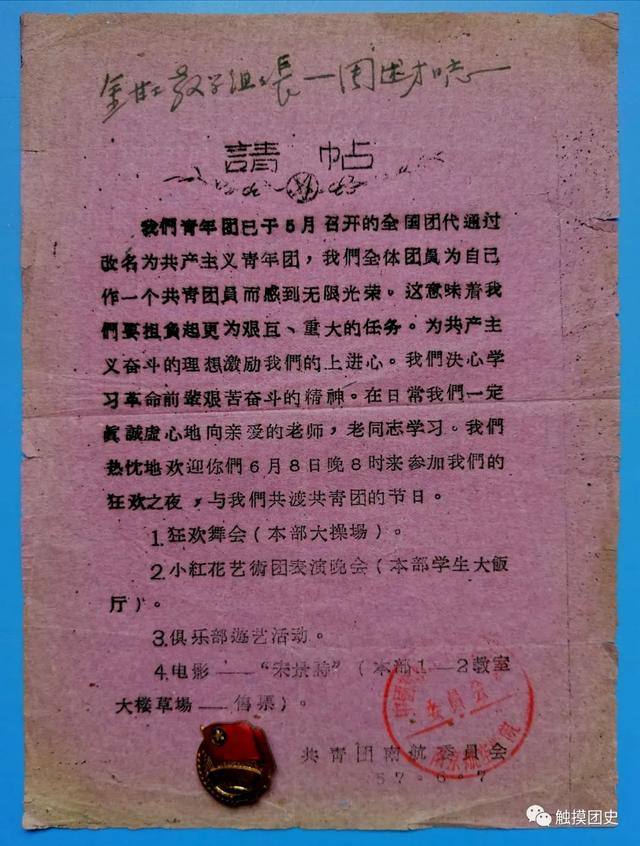 教学组長一周
請 帖
我們青年团已于5月召开的全國团代通过
改名为共产主义青年团，我們全体团員为自己
作一个共青团員而感到无限光荣。这意味着我
們要担負起更为艰互、重大的任务。为共产主
义奋斗的理想激励我們的上进心。我們决心学
习革命前辈艰苦奋斗的精神。在日常我們一定
眞誠虛心地向亲爱的老师，老同志学习。我們
热忱地欢迎你們6月8日晚8时来参加我們的
狂欢之夜，与我們共渡共青团的节日。
1.狂欢舞会（本部大操場）。
2.小紅花艺術团表演晚会（本部学生大飯
厅）。
3.俱乐部遊艺活动。
4.电影——“宋景詩”（本部1—2教室
大楼草場——售票）。
委員会
共青团南航委員会
57.6.7
触摸团史